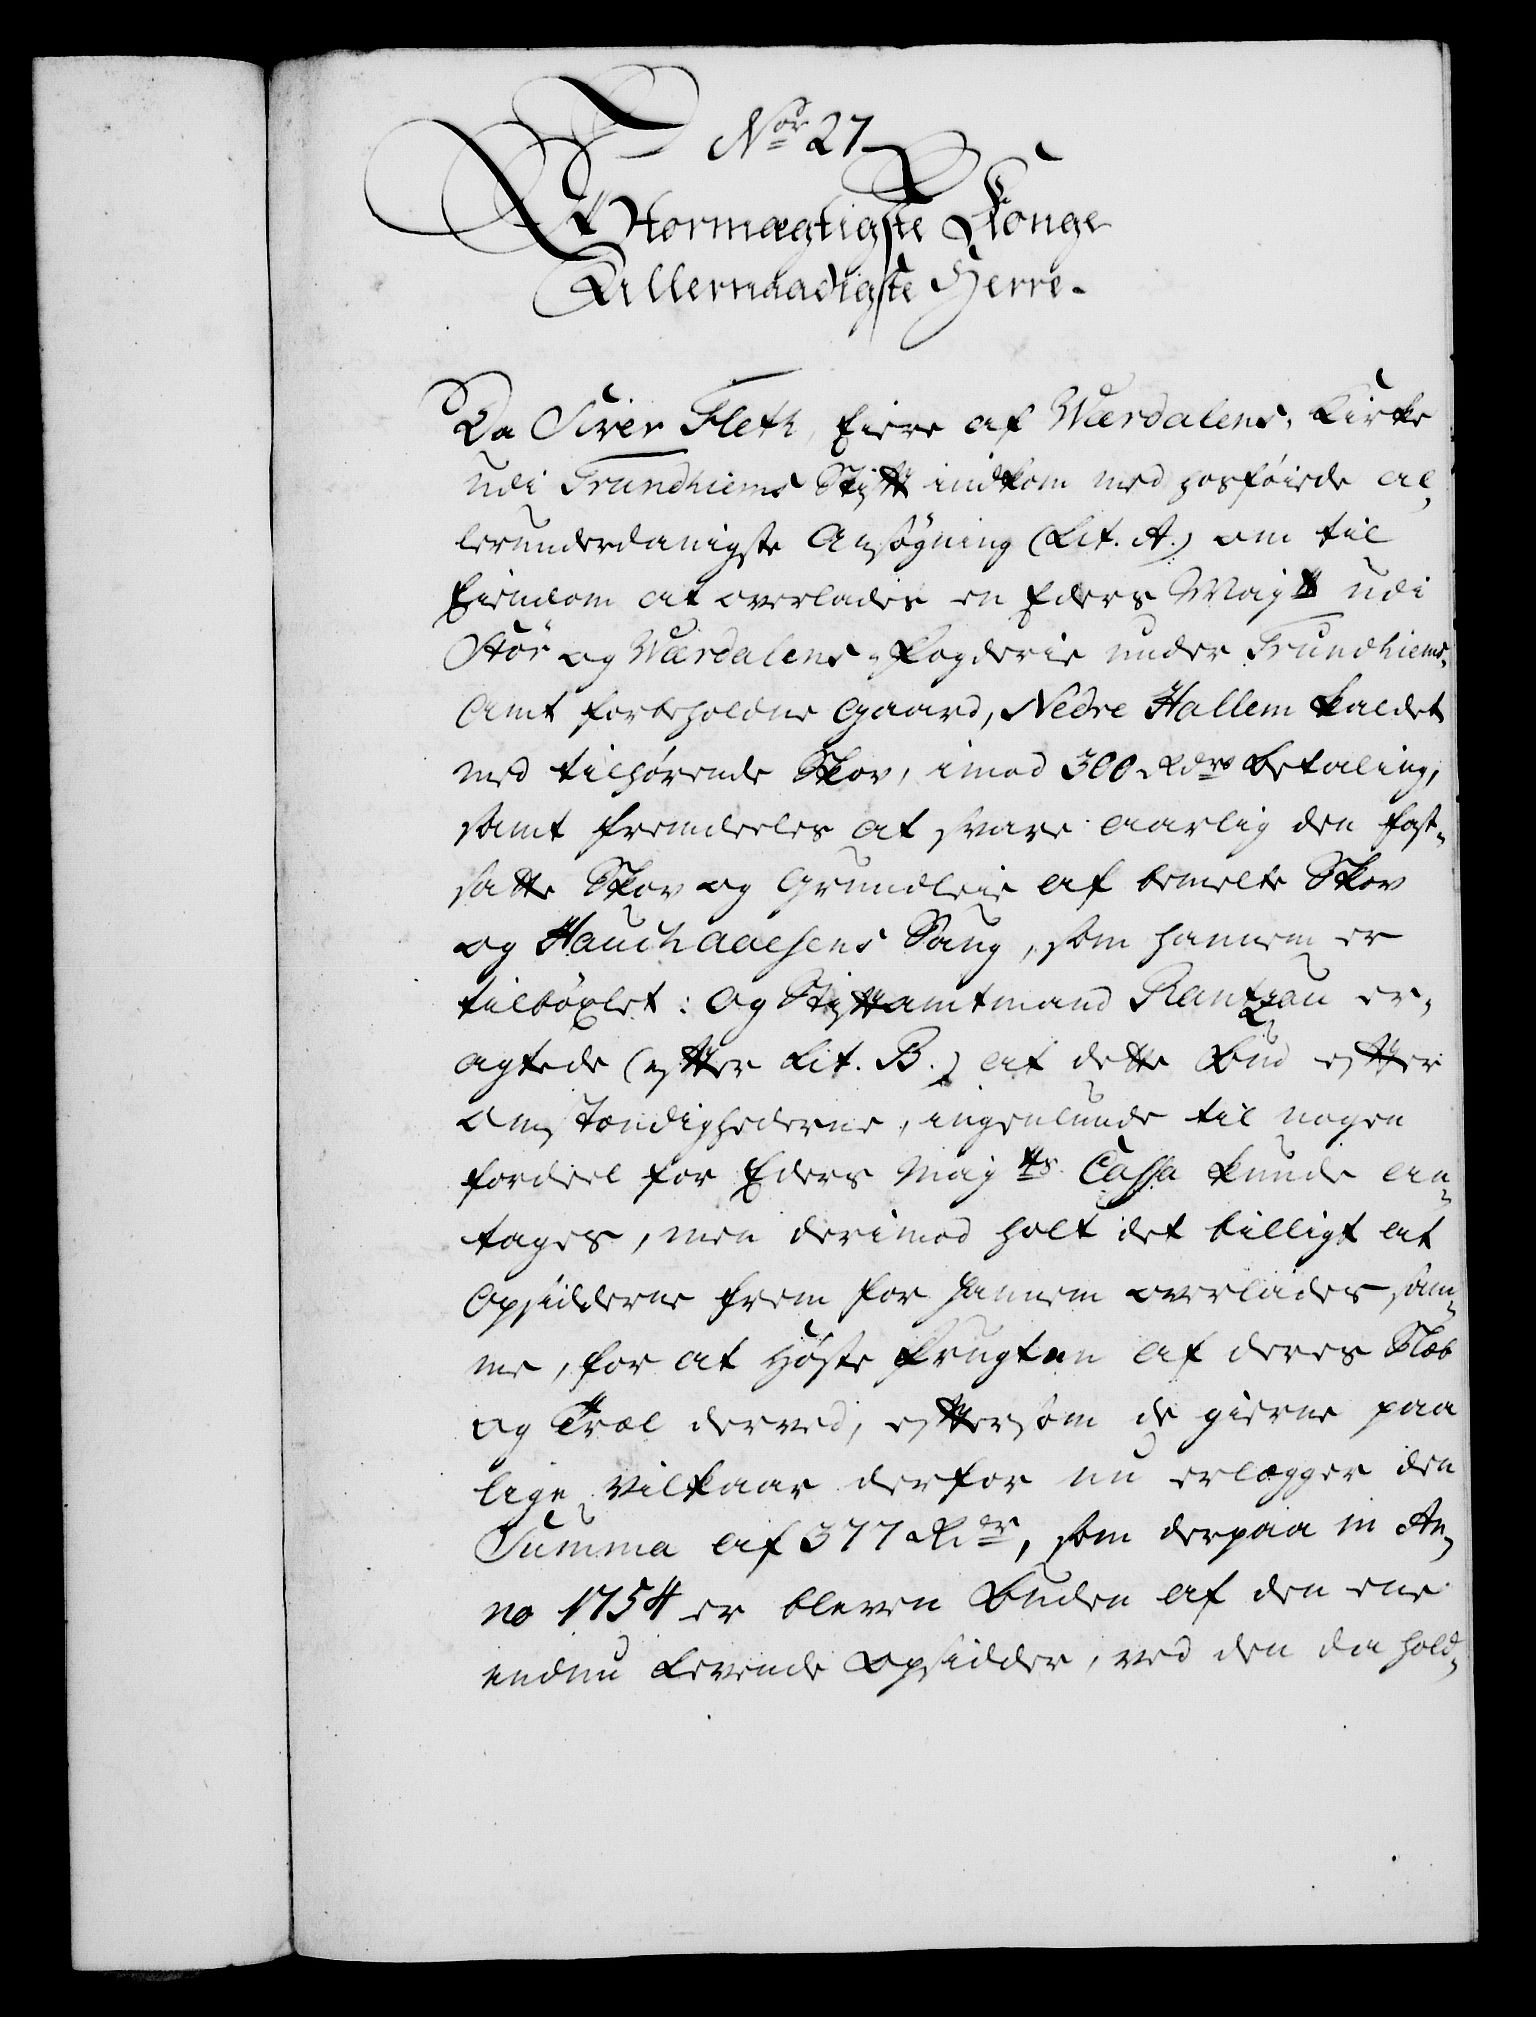 Nor 27
Stormægtigste Konge
Allernaadigste Herre.
Da Siver Fleth, Eiere af Wærdalens Kirke
udi Trundhiems Stift indkom med hosføiede al-
lerunderdanigste Ansøgning (Lit. A.) om til
Eiendom at overlades en Eders Majts udi
Stör og Wærdalens Fogderie under Trundhiems
Amt forbeholdne Gaard, Nedre Hallem kaldet
med tilhørende Skov, imod 300 Rdrs betaling,
samt fremdeeles at svare aarlig den fast-
satte Skov og Grundleie af bemelte Skov
og Hauchaaesens Saug, som hannem er
tilböxlet: Og Stiftamtmand Rantzau er-
agtede (efter Lit. B.) at dette Bud efter
Omstændighederne, ingenlunde til nogen
fordeel for Eders Majts Cassa kunde an-
tages, men derimod holt det billigt at
Opsidderne frem for hannem overlades sam-
me, for at Høste Frugten af deres Slæb
og Træl derved, eftersom de gierne paa
lige Vilkaar derfor nu erlegger den
Summa af 377 Rdr, som derpaa in An-
no 1754 er bleven buden af den ene
endnu levende Opsidder, ved den da hold-